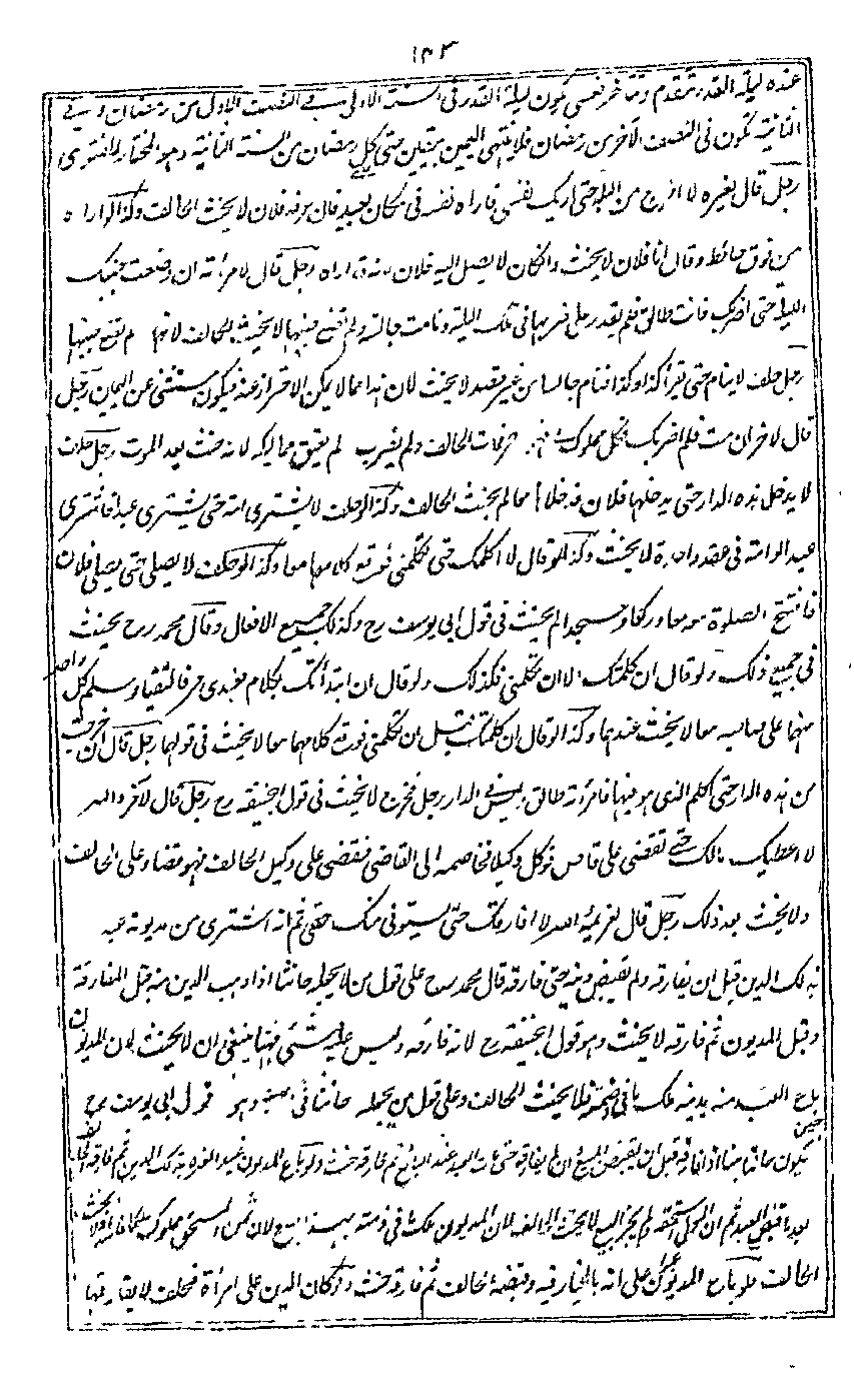 ١٤٣
عنده ليلة القدر تتقدم وتتأخر فعسى تكون ليلة القدر فى السنة الاولى فى النصف الاول من رمضان وفى
الثانية تكون فى النصف الآخر من رمضان فلا ينتهى اليمين بيقين حتى كل رمضان من السنة الثانية وهو المختار للفتوى
رجل قال لغيره لا اخرج من البلد حتى اريك نفسى فاراه نفسه فى مكان بعيد فان عرفه فلان لا يحنث الحالف وكذا لو اراه
من فوق حائط وقال انا فلان لا يحنث وان كان لا يصل اليه فلان اراه رجل قال لامرأته ان وضعت جنبك
الليلة حتى اضربك فانت طالق فلم يقدر على ضربها فى تلك الليلة ونامت جالسة ولم تضع جنبها لا يحنث الحالف لانها لم تضع جنبها
رجل حلف لا ينام حتى يقرأ كذا وكذا فنام جالسا من غير قصد لا يحنث لان هذا مما لا يمكن الاحتراز عنه فيكون مستثنى عن اليمين رجل
قال لآخر ان مت فلم اضربك فكل مملوك لى حر فمات الحالف ولم يضرب لم يعتق مماليكه لانه حنث بعد الموت رجل حلف
لا يدخل هذه الدار حتى يدخلها فلان فدخلا معا لم يحنث الحالف وكذا لو حلف لا يشترى امة حتى يشترى عبدا فاشترى
عبدا وامة فى عقد واحدة لا يحنث وكذا لو قال لا اكلمك حتى تكلمنى فوقع كلامهما معا وكذا لو حلف لا يصلى حتى يصلى فلان
فافتتح الصلوة معه معا وركعا وسجدا لم يحنث فى قول ابى يوسف رح وكذلك جميع الافعال وقال محمد رح يحنث
فى جميع ذلك ولو قال ان كلمتك الا ان تكلمنى فكذلك ولو قال ان ابتدأتك بكلام فعبدى حر فالتقيا وسلم كل واحد
منهما على صاحبه معا لا يحنث عندهما وكذا لو قال ان كلمتك قبل ان تكلمنى فوقع كلامهما معا لا يحنث فى قولهما رجل قال ان خرجت
من هذه الدار حتى اكلم الذى هو فيها فامرأته طالق وليس فى الدار رجل فخرج لا يحنث فى قول ابيحنيفة رح رجل قال لآخر والله
لا اعطيك مالك حتى تقضى على قاض فوكل وكيلا فخاصمه الى القاضى فقضى على وكيل الحالف فهو قضاء على الحالف
ولا يحنث بعد ذلك رجل قال لغريمه والله لا افارقك حتى استوفى منك حقى ثم انه اشترى من مديونه عبدا
بذلك الدين قبل ان يفارقه ولم يقبضه حتى فارقه قال محمد رح على قول من لا يجعله حانثا اذا وهب الدين منه قبل المفارقة
وقبل المديون ثم فارقه لا يحنث وهو قول ابيحنيفة رح لانه فارقه وليس عليه شئ فههنا ينبغى ان لا يحنث لان المديون
باع العبد منه بدينه ملك ما فى ذمته فلا يحنث الحالف وعلى قول من يجعله حانثا فى الهبة وهو قول ابى يوسف رح
يكون حانثا ههنا اذا فارقه قبل ان يقبض المبيع وان لم يفارقه حتى مات العبد عند البائع ثم فارقه حنث ولو باع المديون عبدا لغيره بذلك الدين ثم فارقه الحالف
بعد ما قبض العبد ثم ان المولى استحقه ولم يجز البيع لا يحنث الحالف لان المديون ملك ما فى ذمته بهذا البيع لان ثمن المستحق مملوك
الحالف ولو باع المديون على انه بالخيار فيه وقبضه الحالف ثم فارقه حنث ولو كان الدين على امرأة فحلف لا يفارقها